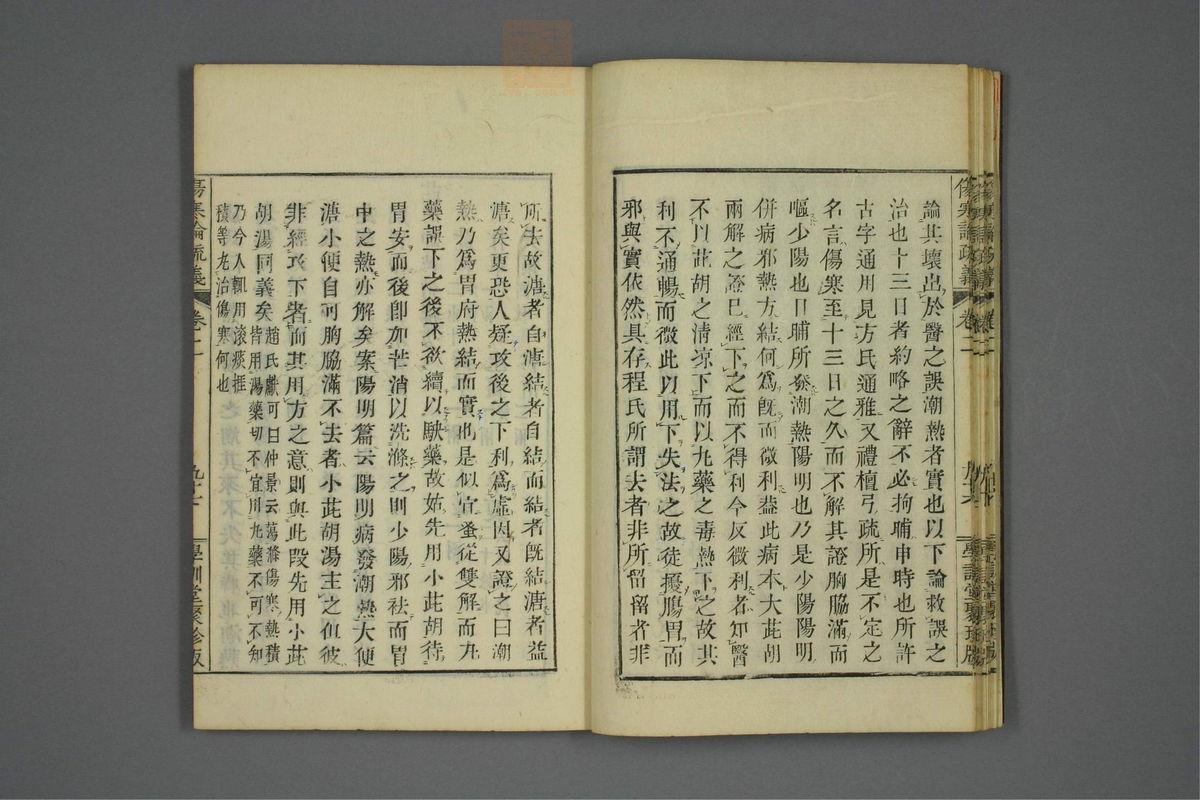 論其壞出於醫之誤潮熱者實也以下論救誤之
治也十三日者約略之辭不必拘晡申時也所許
古字通用見方氏通雅又禮檀弓疏所是不定之
名言傷寒至十三日之久而不解其證胸脇滿而
嘔少陽也日晡所發潮熱陽明也乃是少陽陽明
併病邪熱方結何爲既而微利蓋此病本大茈胡
兩解之證已經下之而不得利今反微利者知醫
不以茈胡之淸凉下而以丸藥之毒熱下之故其
利不通暢而微此以用下失法之故徒擾腸胃而
邪與實依然具存程氏所謂去者非所留留者非
所去故溏者自溏結者自結而結者既結溏者益
溏矣更恐人疑攻後之下利爲虛因又證之曰潮
熱乃爲胃府熱結而實也是似宜蚤從雙解而丸
藥誤下之後不欲續以駃藥故姑先用小茈胡待
胃安而後卽加芒消以洗滌之則少陽邪袪而胃
中之熱亦解矣案陽明篇云陽明病發潮熱大便
溏小便自可胸脇滿不去者小茈胡湯主之但彼
非經攻下者而其用方之意則與此段先用小茈
胡湯同義矣趙氏獻可曰仲景云蕩滌傷寒熱積
皆用湯藥切不宜用丸藥不可不知
乃今人輒用滾痰
積等丸治傷寒何也
傷寒論疏義
卷二
學訓堂聚珍版